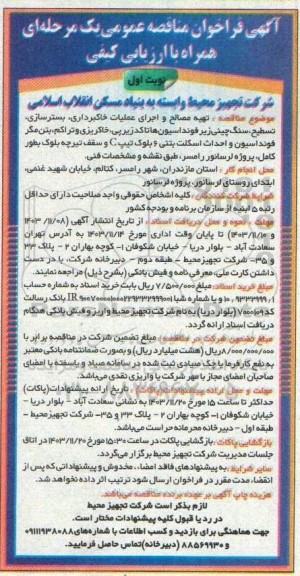 آگهی فراخوان مناقصه عمومی یک مرحله‌ای
همراه با ارزیابی کیفی
نوبت اول
شرکت تجهیز محیط وابسته به بنیاد مسکن انقلاب اسلامی
موضوع مناقصه : تهیه مصالح و اجرای عملیات خاکبرداری، بسترسازی،
تسطیح، سنگ‌چینی زیر فونداسیون‌ها تا کد زیر پی، خاکریزی و تراکم، بتن مگر
فونداسیون و احداث اسکلت بتنی ۶ بلوک تیپ C و سقف تیرچه بلوک بطور
کامل، پروژه لرسانور رامسر، طبق نقشه و مشخصات فنی.
محل انجام کار : استان مازندران، شهر رامسر، کتالم، خیابان شهید غنمی،
ابتدای روستای لرسانور، پروژه لرسانور
شرایط شرکت کنندگان : کلیه اشخاص حقوقی واجد صلاحیت دارای حداقل
رتبه ۵ ابنیه از سازمان برنامه و بودجه کشور
مهلت، نحوه و محل دریافت اسناد : از تاریخ انتشار آگهی (۱۴۰۳/۱۱/۰۸
و ۱۴۰۳/۱۱/۱۰) تا پایان وقت اداری مورخ ۱۴۰۳/۱۱/۱۴ به آدرس تهران
سعادت آباد - بلوار دریا - خیابان شکوفان ۱- کوچه بهاران ۲ - پلاک ۳۳
و ۳۵- شرکت تجهیز محیط - طبقه دوم - دبیرخانه شرکت، با در دست
داشتن کارت ملی، معرفی نامه و فیش بانکی (بشرح ذیل) مراجعه نمایند.
مبلغ خرید اسناد: مبلغ ۷/۵۰۰/۰۰۰ ریال بابت خرید اسناد به شماره حساب
بانک رسالت
کد ۷۰۰۱۰۹ (بلوار دریا) به نام شرکت تجهیز محیط واریز و فیش بانکی هنگام
دریافت اسناد ارائه گردد.
مبلغ تضمین شرکت در مناقصه: مبلغ تضمین شرکت در مناقصه برابر با
۸/۰۰۰/۰۰۰/۰۰۰ ریال (هشت میلیارد ریال) و بصورت ضمانتنامه بانکی معتبر
به نفع کارفرما یا چک صیادی ثبت شده در سامانه صیاد و بایستی با امضای
صاحبان امضای مجاز با مهر شرکت یا واریزی نقدی می‌باشد.
مهلت و محل ارائه پیشنهادات (پاکات) : تاریخ ارائه پیشنهادات (پاکات)
حداکثر تا ساعت ۱۵ مورخ ۱۴۰۳/۱۱/۲۰ به نشانی سعادت آباد - بلوار دریا -
خیابان شکوفان ۱- کوچه بهاران ۲ - پلاک ۳۳ و ۳۵- شرکت تجهیز محیط -
طبقه اول - دبیرخانه محرمانه حراست می‌باشد.
بازگشایی پاکات : بازگشایی پاکات در ساعت ۱۵:۳۰ مورخ ۱۴۰۳/۱۱/۲۰ در اتاق
جلسات مدیریت شرکت تجهیز محیط برگزار می‌گردد.
سایر شرایط : به پیشنهادهای فاقد امضا، مخدوش و پیشنهاداتی که پس از
انقضاء مدت مقرر در فراخوان ارسال شود ترتیب اثر داده نخواهد شد.
هزینه چاپ آگهی بر عهده برنده مناقصه می‌باشد.
لازم بذکر است شرکت تجهیز محیط
در رد یا قبول کلیه پیشنهادات مختار است.
جهت هماهنگی برای بازدید و کسب اطلاعات با شماره‌های ۰۹۱۱۱۹۳۸۰۸۸
و ۸۸۵۶۹۹۳۰ (دبیرخانه) تماس حاصل فرمایید.